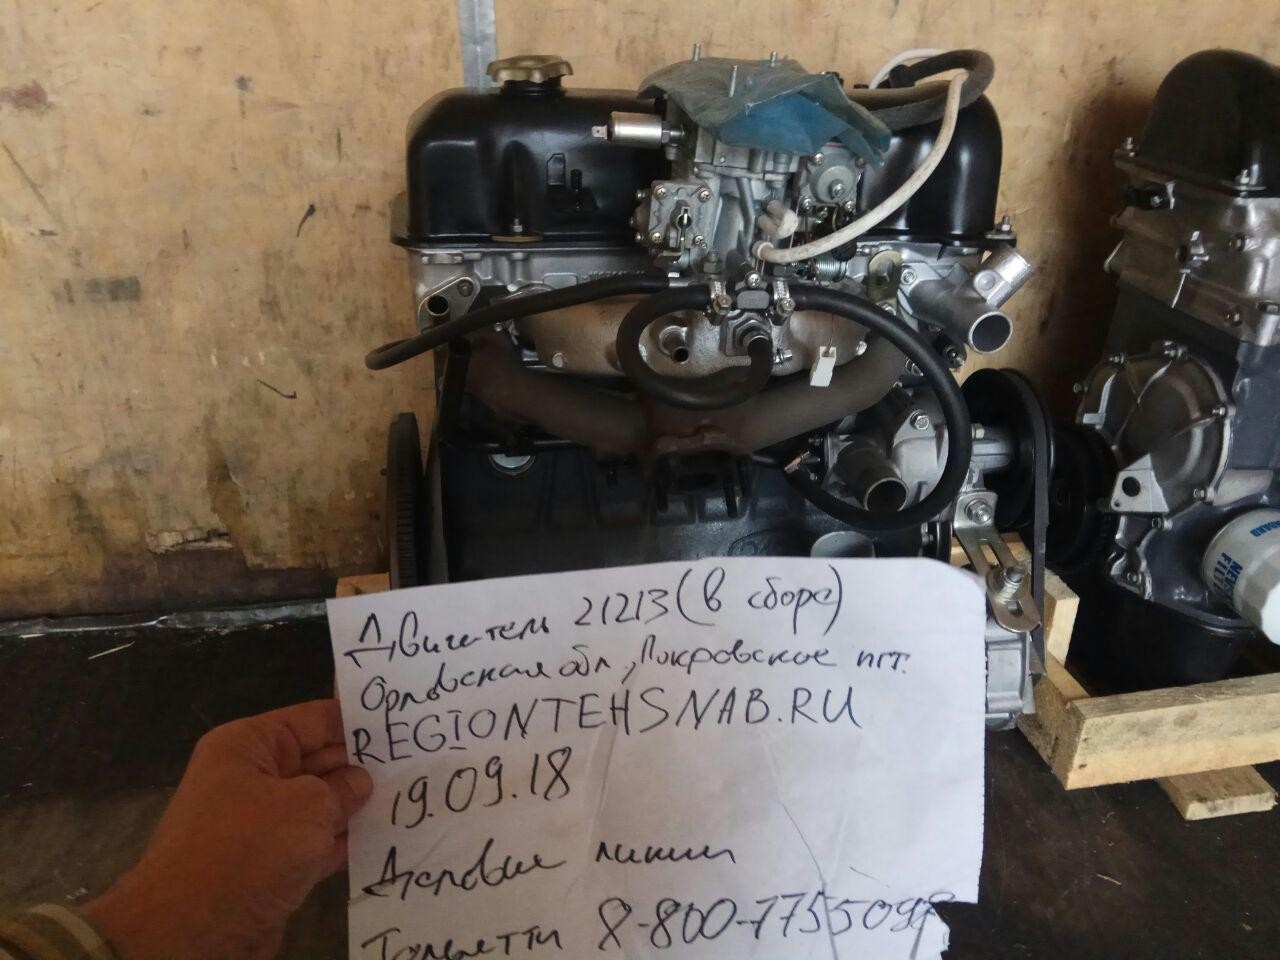 Двигатель 21213 (в сборе)
Орловская обл, Покровское пгт.
REGIONTEHSNAB.RU
19.09.18
Деловые линии
Тольятти 8-800-7755098